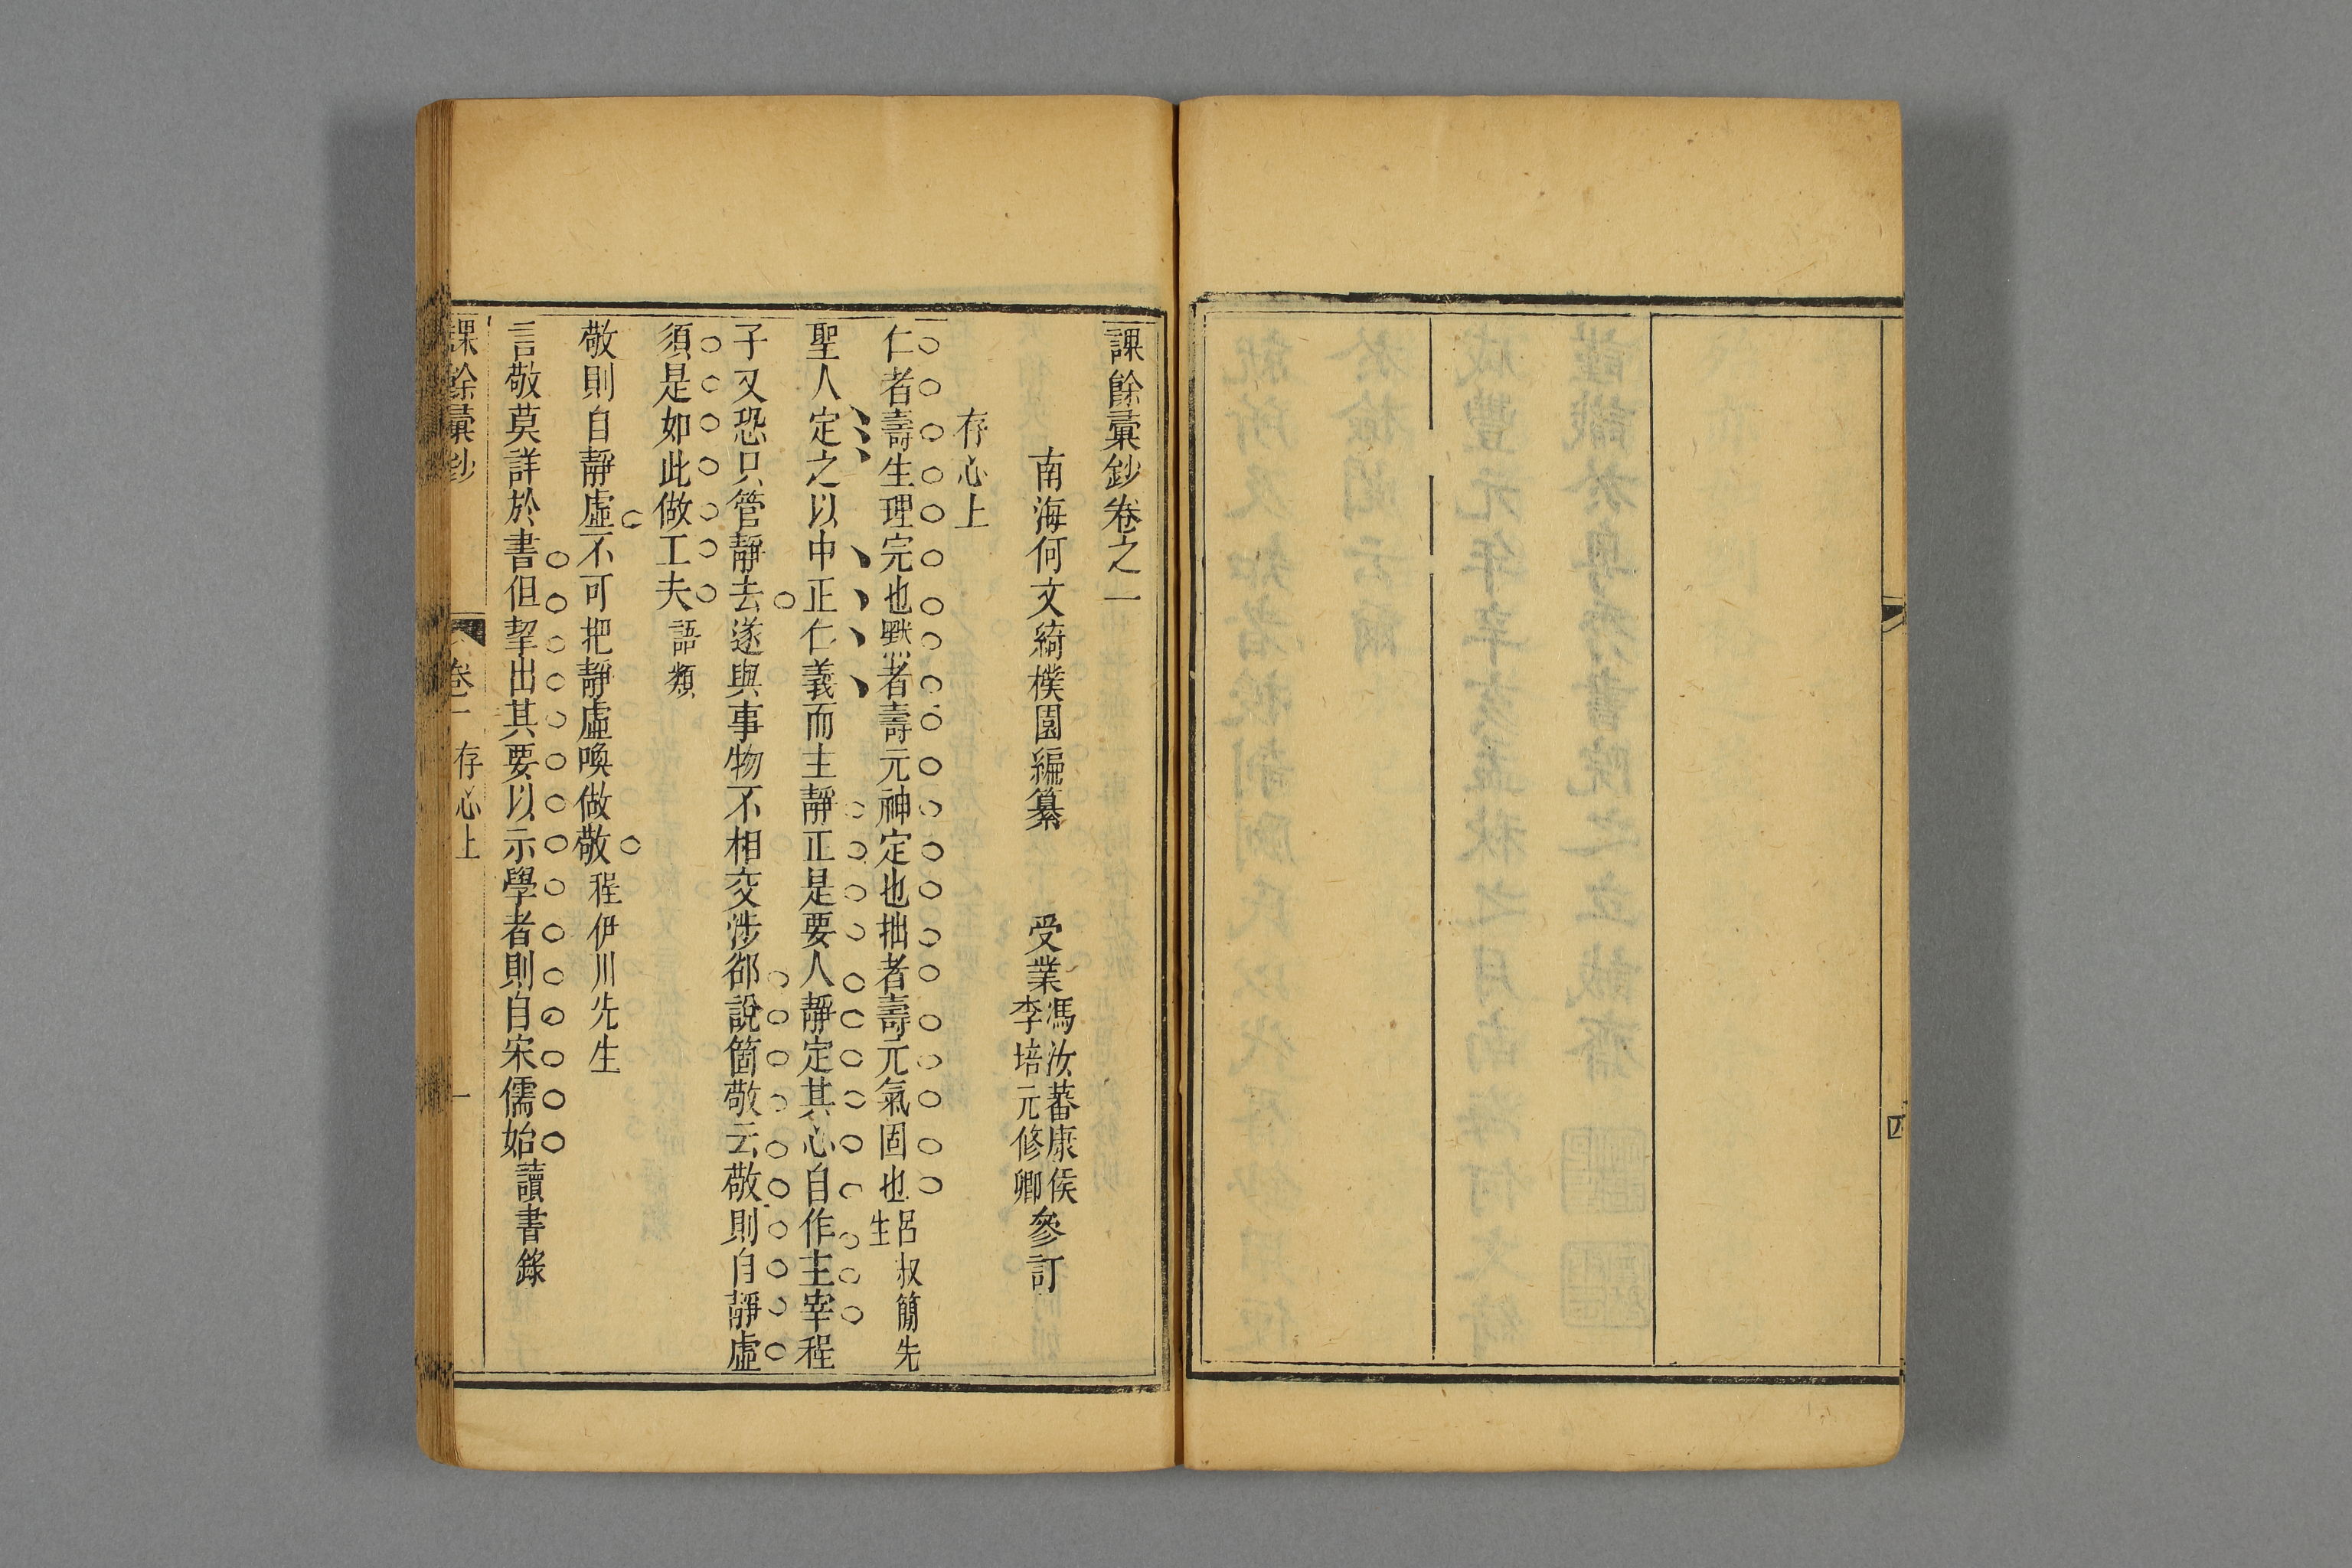 四
課餘彙鈔卷之一
南海何文綺樸園編纂 受業馮汝蕃康侯李培元修卿參訂
存心上
仁者壽生理完也默者壽元神定也拙者壽元氣固也呂叔簡先生
聖人定之以中正仁義而主靜正是要人靜定其心自作主宰程
子又恐只管靜去遂與事物不相交涉卻說箇敬云敬則自靜虛
須是如此做工夫語類
敬則自靜虛不可把靜虛喚做敬程伊川先生
言敬莫詳於書但挈出其要以示學者則自宋儒始讀書錄
課餘彙鈔 卷一 存心上 一